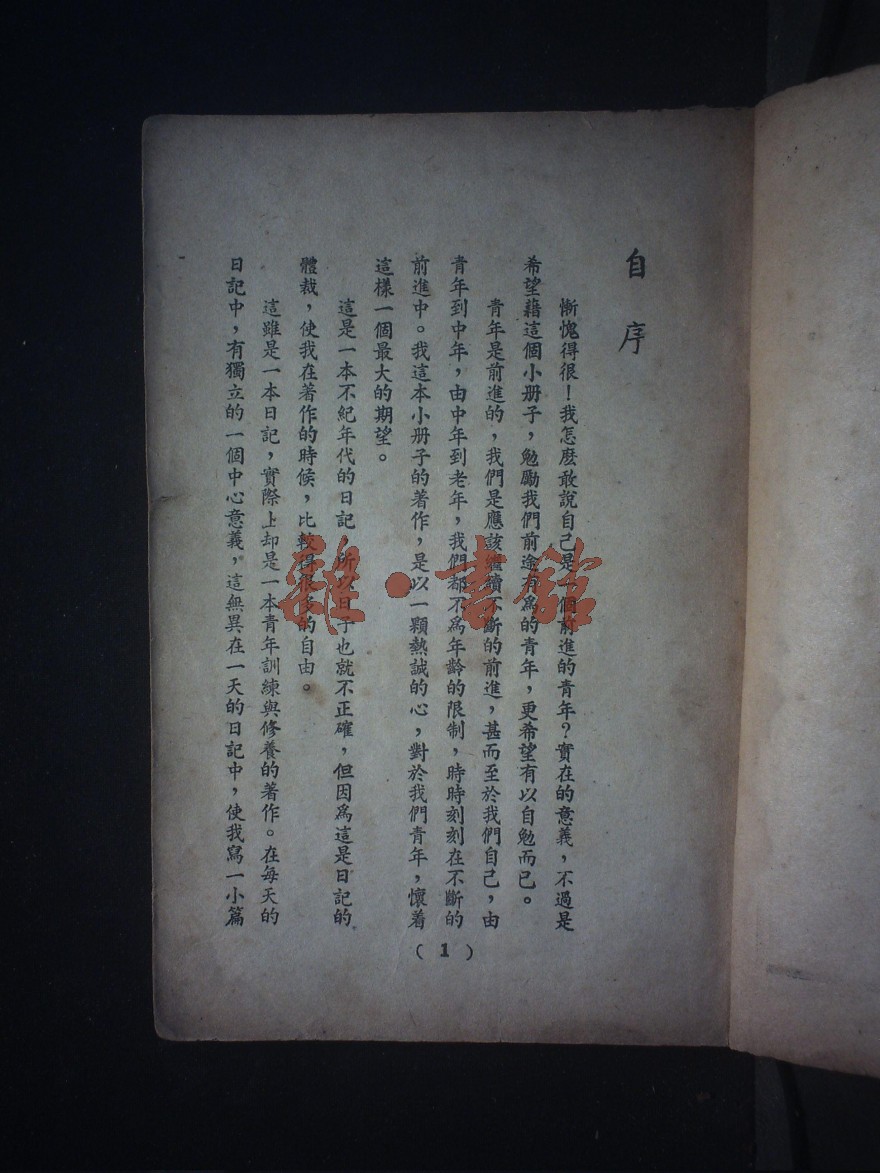 自序
慚愧得很！我怎麽敢說自己是一個前進的青年？實在的意義，不過是
希望藉這個小册子，勉勵我們前途有爲的青年，更希望有以自勉而已。
青年是前進的，我們是應該繼續不斷的前進，甚而至於我們自己，由
青年到中年，由中年到老年，我們都不爲年齡的限制，時時刻刻在不斷的
前進中。我這本小册子的著作，是以一顆熱誠的心，對於我們青年，懷着
這樣一個最大的期望。
這是一本不紀年代的日記　所以日子也就不正確，但因爲這是日記的
體裁，使我在著作的時候，比較得很多的自由。
這雖是一本日記，實際上却是一本青年訓練與修養的著作。在每天的
日記中，有獨立的一個中心意義，這無異在一天的日記中，使我寫一小篇
（1）
雜·書館